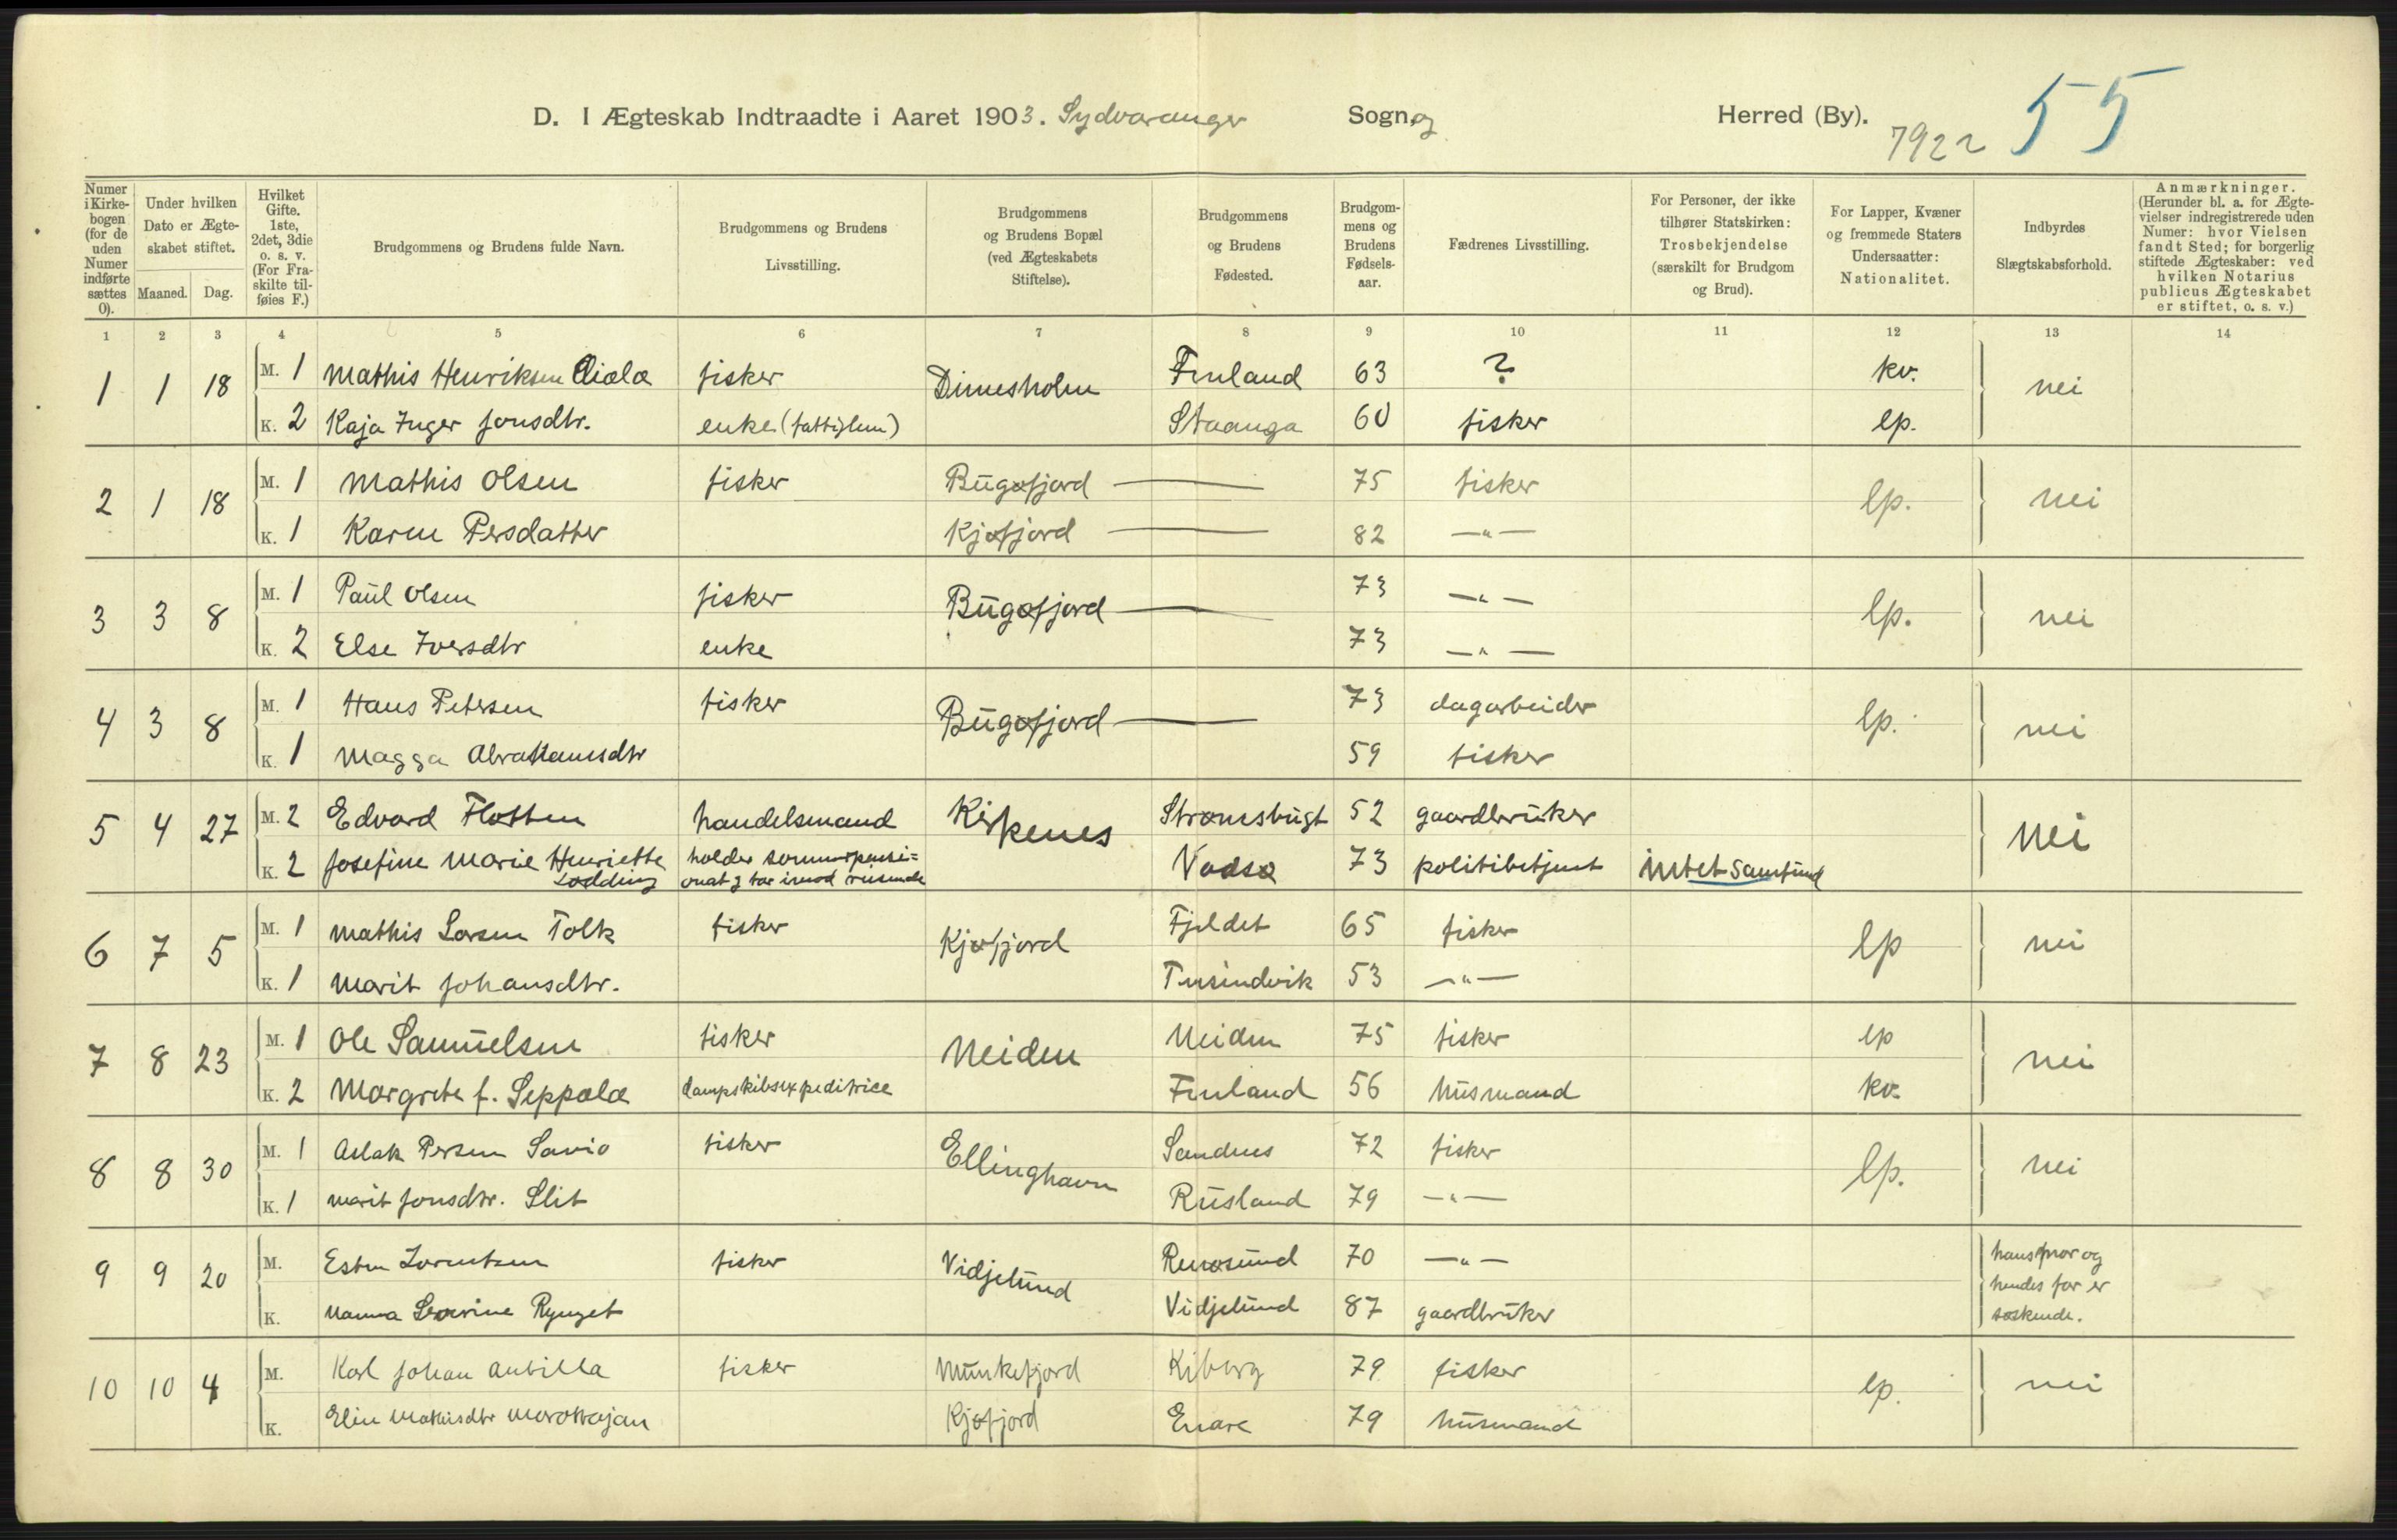 D. I Ægteskab Indtraadte i Aaret 1903. Sydvaranger Sogn og Herred (By).
7922 55
Numer i Kirke-bogen (for de uden Numer indførte sættes 0).
Under hvilken Dato er Ægte-skabet stiftet. Maaned. Dag.
Hvilket Gifte. 1ste, 2det, 3die o. s. v. (For Fra-skilte til-føies F.)
Brudgommens og Brudens fulde Navn.
Brudgommens og Brudens Livsstilling.
Brudgommens og Brudens Bopæl (ved Ægteskabets Stiftelse).
Brudgommens og Brudens Fødested.
Brudgom-mens og Brudens Fødsels-aar.
Fædrenes Livsstilling.
For Personer, der ikke tilhører Statskirken: Trosbekjendelse (særskilt for Brudgom og Brud).
For Lapper, Kvæner og fremmede Staters Undersaatter: Nationalitet.
Indbyrdes Slægtskabsforhold.
Anmærkninger. (Herunder bl. a. for Ægte-vielser indregistrerede uden Numer: hvor Vielsen fandt Sted; for borgerlig stiftede Ægteskaber: ved hvilken Notarius publicus Ægteskabet er stiftet, o. s. v.)
1 2 3 4 5 6 7 8 9 10 11 12 13 14
1 1 18 M. 1 Mathis Henriksen fisker Finland 63 ? kv. nei
K. 2 Kaja Inger Jonsdtr. enke (fattiglem) Staanga 60 fisker lp.
2 1 18 M. 1 Mathis Olsen fisker Bugøfjord — 75 fisker lp. nei
K. 1 Karen Persdatter Kjøfjord — 82 —"—
3 3 8 M. 1 Paul Olsen fisker Bugøfjord — 73 —"— lp. nei
K. 2 Else Iversdtr enke 73 —"—
4 3 8 M. 1 Hans Petersen fisker Bugøfjord — 73 dagarbeider lp. nei
K. 1 Magga Abrahamsdtr 59 fisker
5 4 27 M. 2 Edvard Flotten handelsmand Kirkenes Strømsbugt 52 gaardbruker nei
K. 2 Josefine Marie Henriette Lødding holder sommerpensi=onat g tar imod reisende Vadsø 73 politibetjent intet samfund
6 7 5 M. 1 Mathis Larsen Tolk fisker Kjøfjord Fjeldet 65 fisker lp nei
K. 1 Marit Johansdtr. Tusindvik 53 —"—
7 8 23 M. 1 Ole Samuelsen fisker Neiden Neiden 75 fisker lp nei
K. 2 Margrete f. Seppälä dampskibsexpeditrice Finland 56 husmand kv.
8 8 30 M. 1 Aslak Persen Savio fisker Ellinghavn Sandnes 72 fisker lp. nei
K. 1 Marit Jonsdtr. Slit Rusland 79 —"—
9 9 20 M. Esten Lorentsen fisker Vidjelund Renøsund 70 —"— hans mor og hendes far er søskende.
K. Nanna Severine Rynget Vidjelund 87 gaardbruker
10 10 4 M. Karl Johan fisker Munkefjord Kiberg 79 fisker lp. nei
K. Elin Mathisdtr Kjøfjord Enare 79 husmand